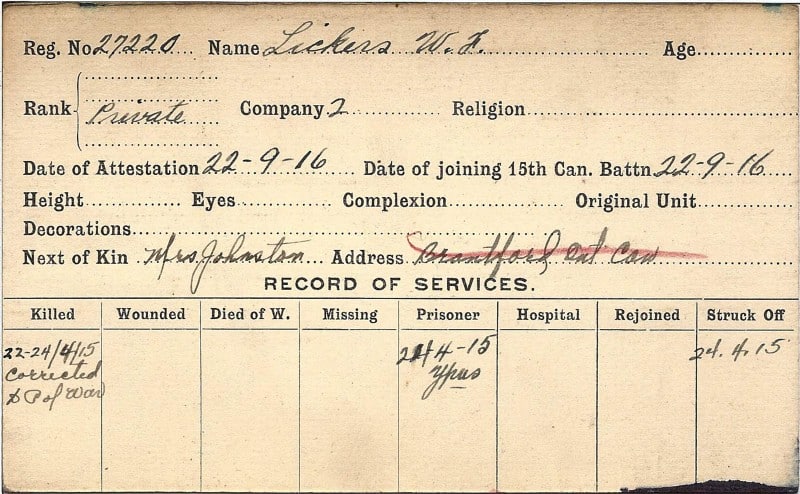 Reg. No 27220 Name Lickers W. F. Age
Rank Private Company 2 Religion
Date of Attestation 22-9-16 Date of joining 15th Can. Battn. 22-9-16
Height Eyes Complexion Original Unit
Decorations
Next of Kin Mrs Johnston Address Brantford, Ont Can
RECORD OF SERVICES.
Killed Wounded Died of W. Missing Prisoner Hospital Rejoined Struck Off
22-24/4/15 24/4-15 24.4.15
corrected Ypres
to P of War